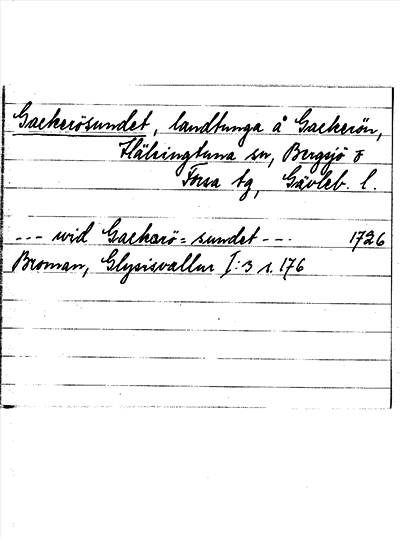 Gackerösundet, landtunga å Gackerön,
Hälsingtuna sn, Bergsjö o
Forsa tg, Gävleb. l.
--- wid Gackarö=sundet --- 1726
Broman, Glysisvallur I:3 s. 176